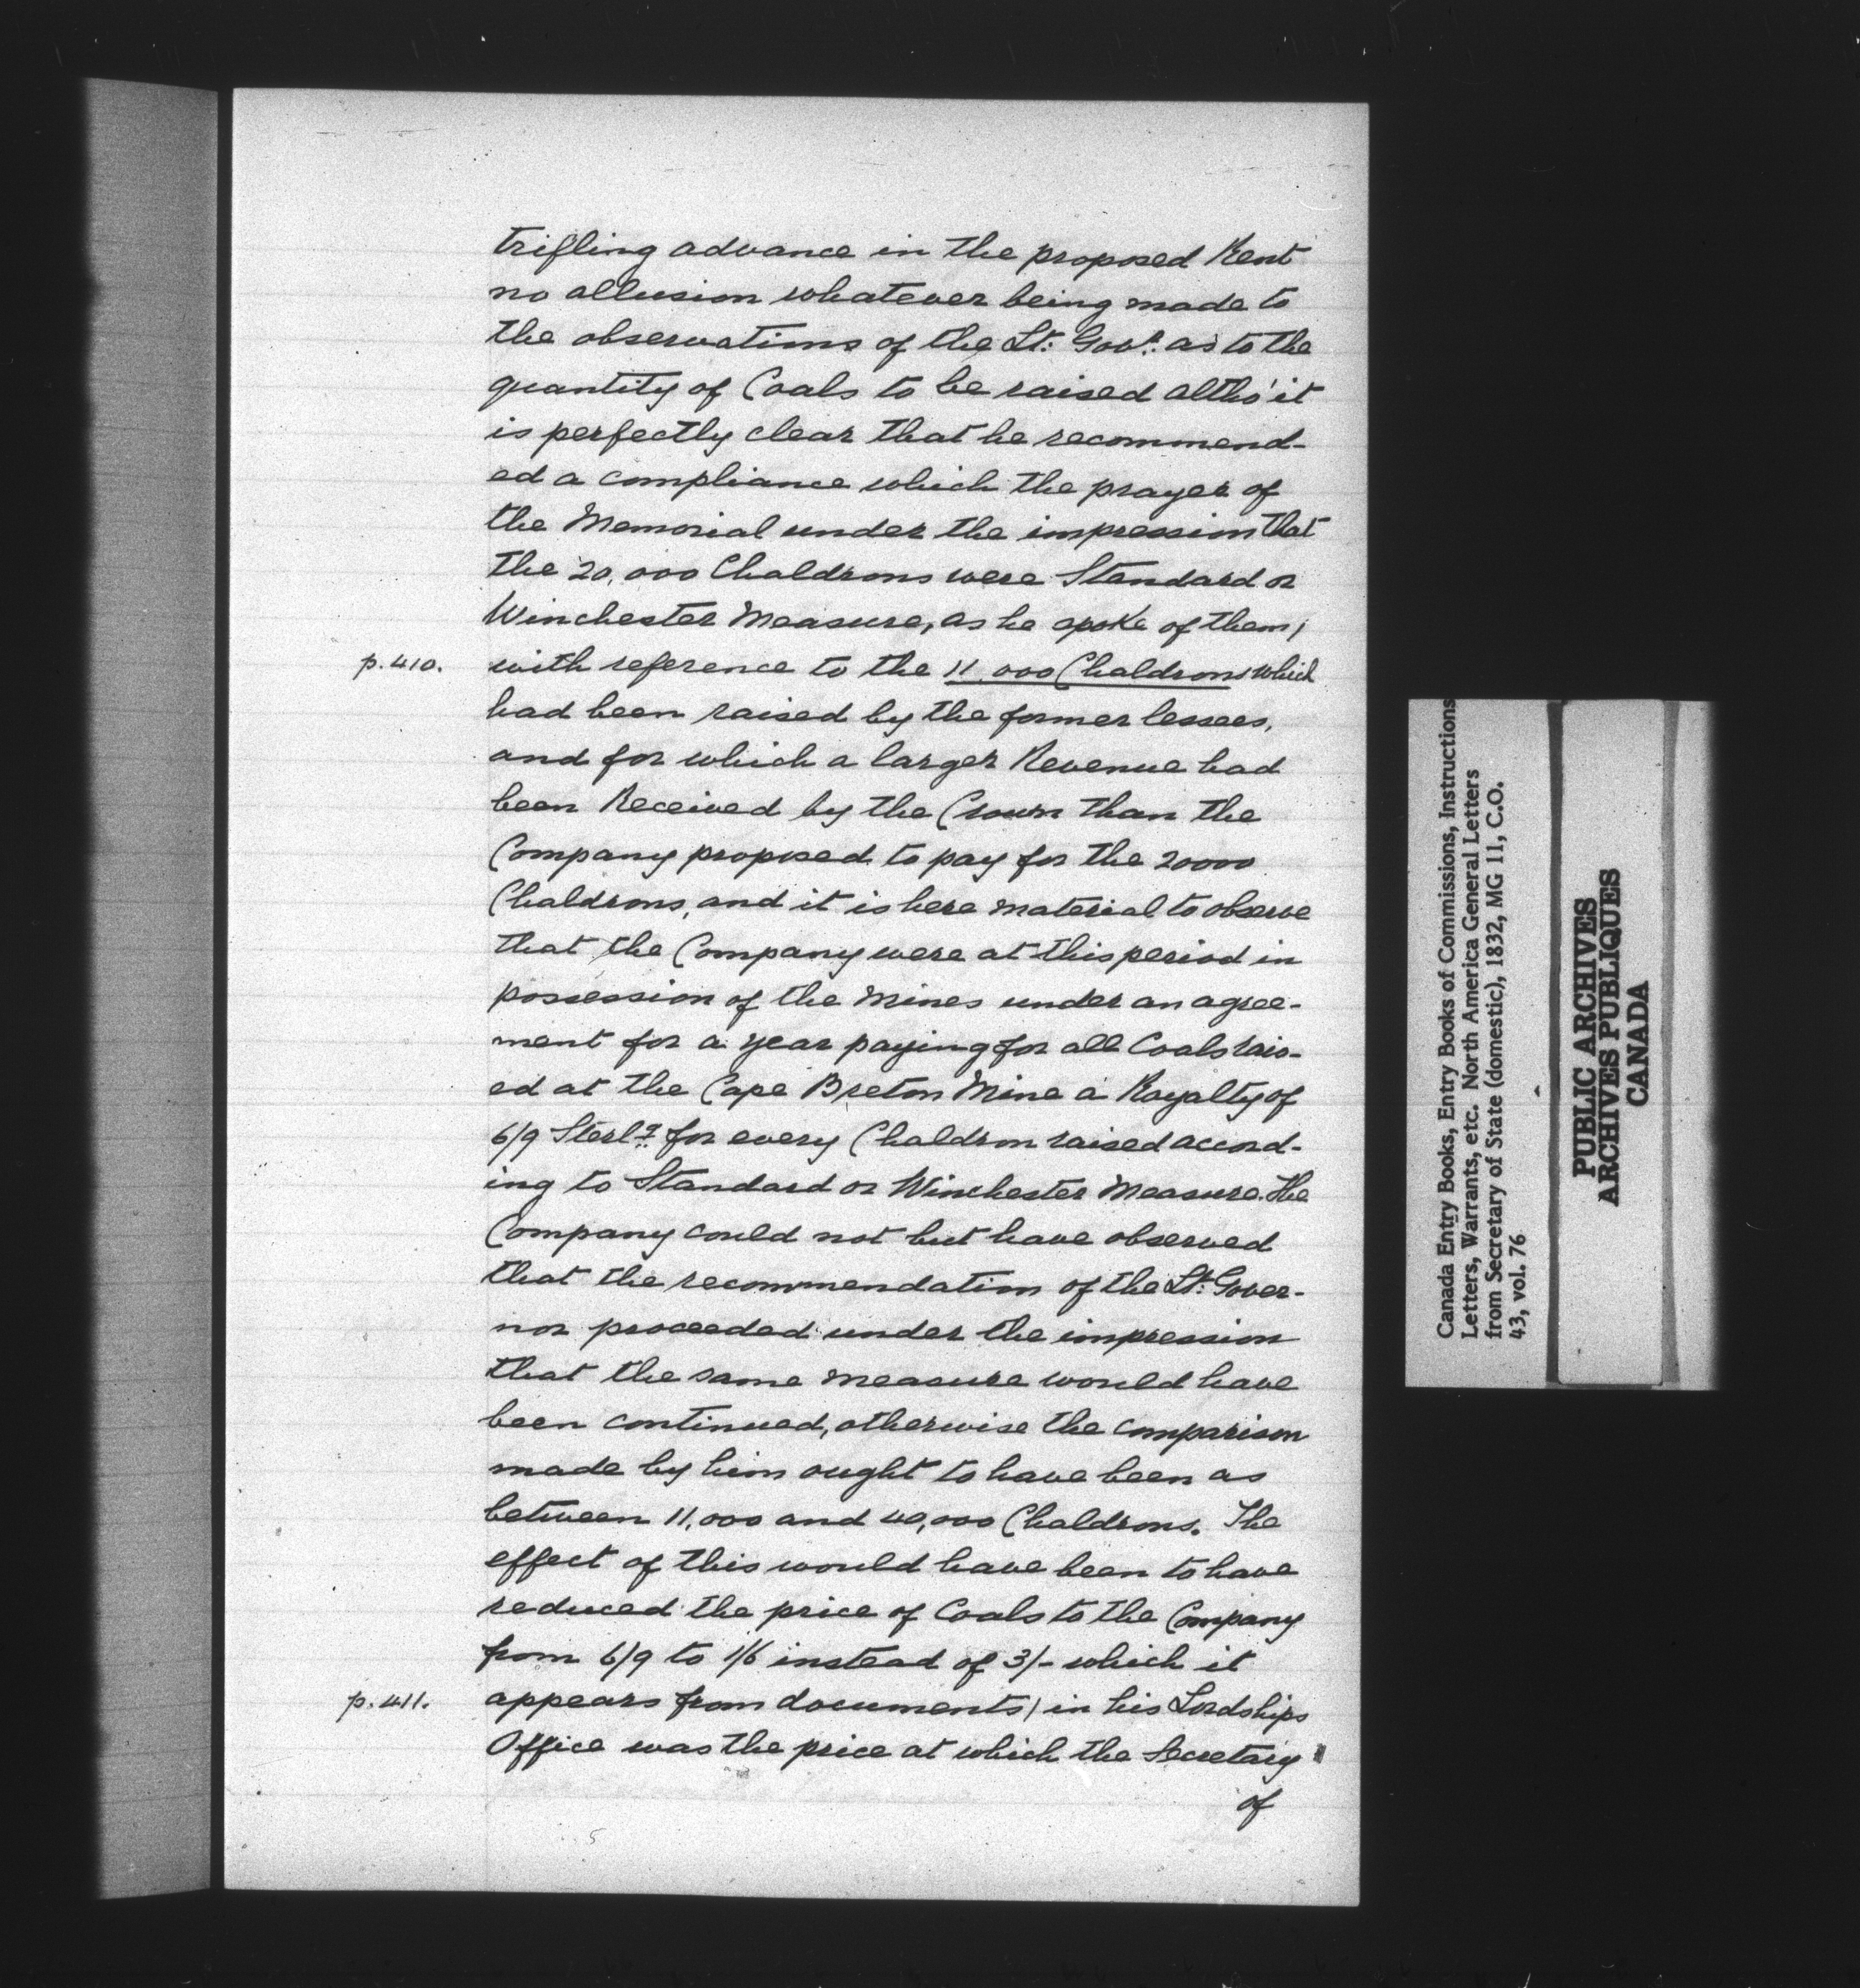 trifling advance in the proposed Rent
no allusion whatever being made to
the observations of the Lt: Govr: as to the
quantity of Coals to be raised altho' it
is perfectly clear that he recommend-
ed a compliance which the prayer of
the Memorial under the impression that
the 20,000 Chaldrons were Standard or
Winchester Measure, as he spoke of them/
p.410. with reference to the 11,000 Chaldrons which
had been raised by the former lessees,
and for which a larger Revenue had
been Received by the Crown than the
Company proposed to pay for the 20000
Chaldrons, and it is here material to observe
that the Company were at this period in
possession of the Mines under an agree-
ment for a year paying for all Coals rais-
ed at the Cape Breton Mine a Royalty of
6/9 Sterlg for every Chaldron raised accord-
ing to Standard or Winchester Measure. The
Company could not but have observed
that the recommendation of the Lt: Gover-
nor proceeded under the impression
that the same measure would have
been continued, otherwise the comparison
made by him ought to have been as
between 11,000 and 40,000 Chaldrons. The
effect of this would have been to have
reduced the price of Coals to the Company
from 6/9 to 1/6 instead of 3/- which it
p.411. appears from documents/ in his Lordships
Office was the price at which the Secretary
of
Canada Entry Books, Entry Books of Commissions, Instructions
Letters, Warrants, etc. North America General Letters
from Secretary of State (domestic), 1832, MG 11, C.O.
43, vol. 76
PUBLIC ARCHIVES
ARCHIVES PUBLIQUES
CANADA